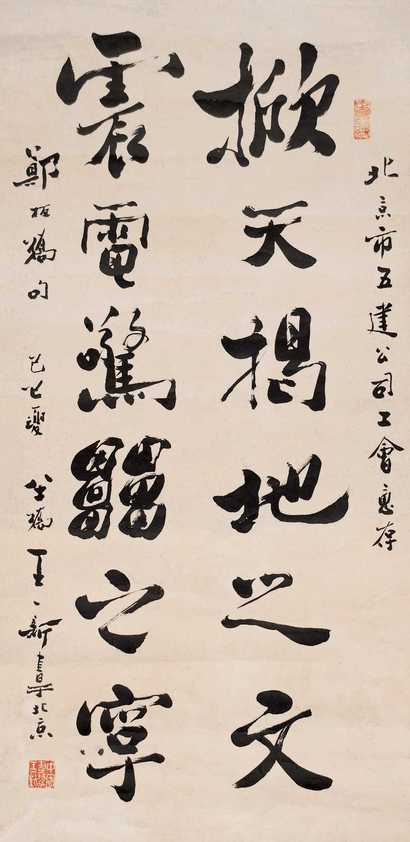 北京市五建公司工會惠存
掀天揭地之文
震電驚雷之字
鄭板橋句 夏 王一新書於北京